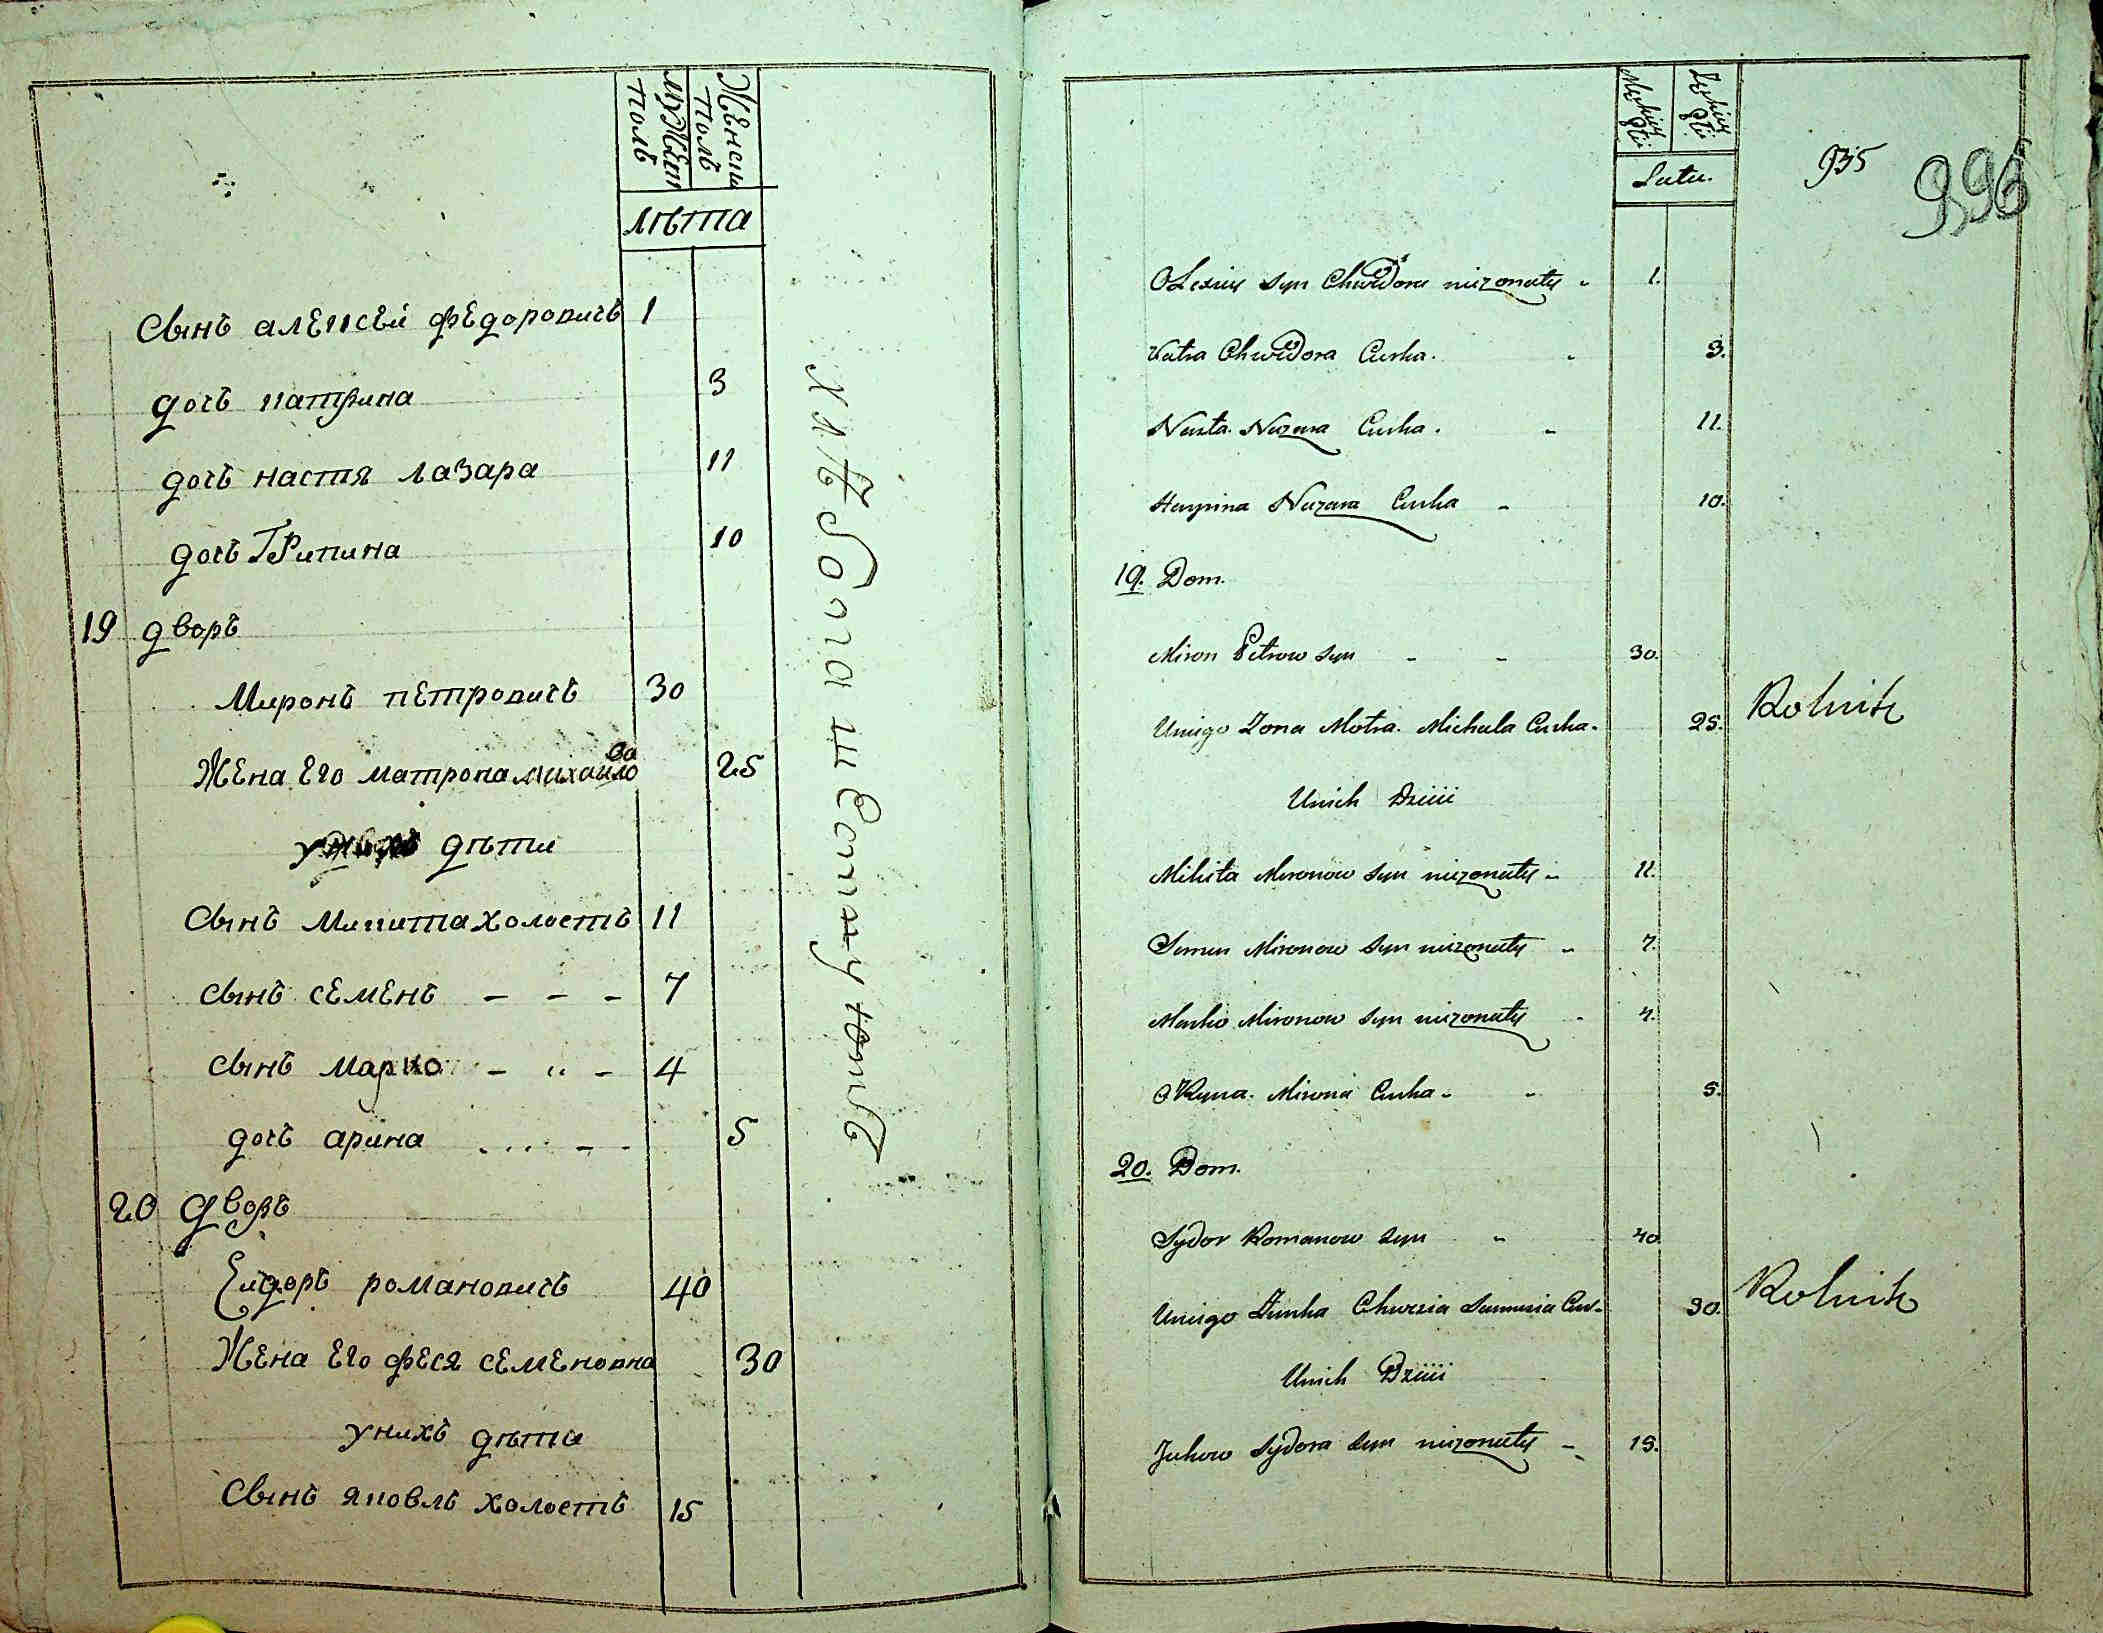 мужеск полъ
Женски полъ
лѣта
Сынъ алеисей федоровичъ 1
дочъ катрина 3
дочъ настя лазара 11
дочъ Грипина 10
19 дворъ
Миронъ петровичъ 30
Жена Его матрона михайлова 25
унихъ дѣти
Сынъ Микита холостъ 11
сынъ семенъ — — — 7
сынъ марко — „ — 4
дочъ арина 5
20 дворъ
Сидоръ романовичъ 40
Жена Его феся семеновна 30
унихъ дѣти
Сынъ яковлъ холостъ 15
хлѣбопашествуютъ
Latu.
935
996
Olexiey syn Chwidora niezonaty 1.
Katra Chwidora Curka. 3.
Nasta Nazara Curka. 11.
Harpina Nazara Curka 10.
19. Dom.
Miron Petrow syn 30.
Uniego Zona Motra Michala Curka. 25.
Rolnik
Unich Dzieii
Mikita Mironow syn niezonaty 11.
Semen Mironow syn niezonaty 7.
Marko Mironow syn niezonaty 4.
Oryna Mirona Curka 5.
20. Dom.
Sydor Romanow syn 40
Uniego Zunka Chwesia Semenia Cur- 30.
Rolnik
Unich Dzieii
Jakow Sydora syn niezonaty 15.